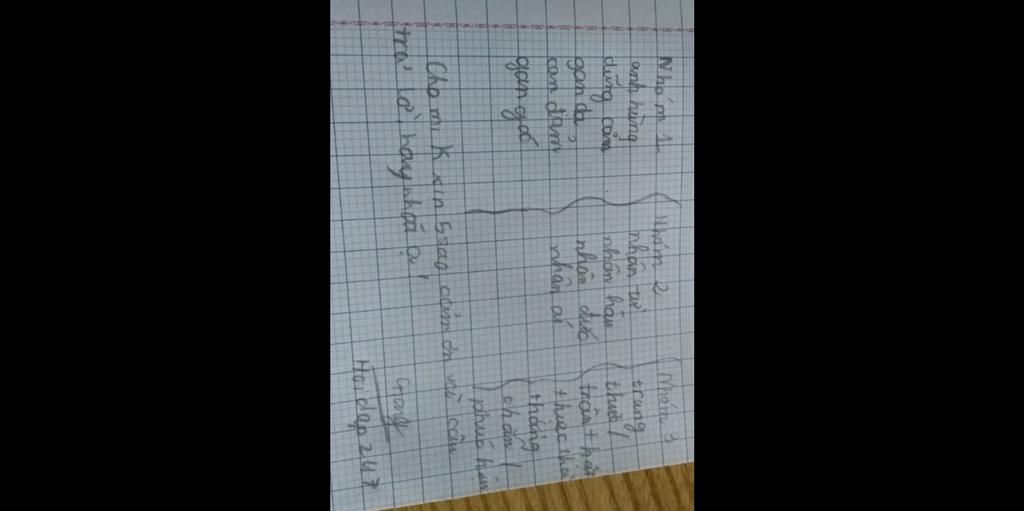 Nhóm 1
anh hùng
dũng cảm
gan dạ,
can đảm
gan góc
Nhóm 2
nhân từ
nhân hậu
nhân đức
nhân ái
Nhóm 3
trung
thực /
thẳng
thắn /
Cho mik xin 5 sao cảm ơn và câu
trả lời hay nhất ạ!
Hoidap247